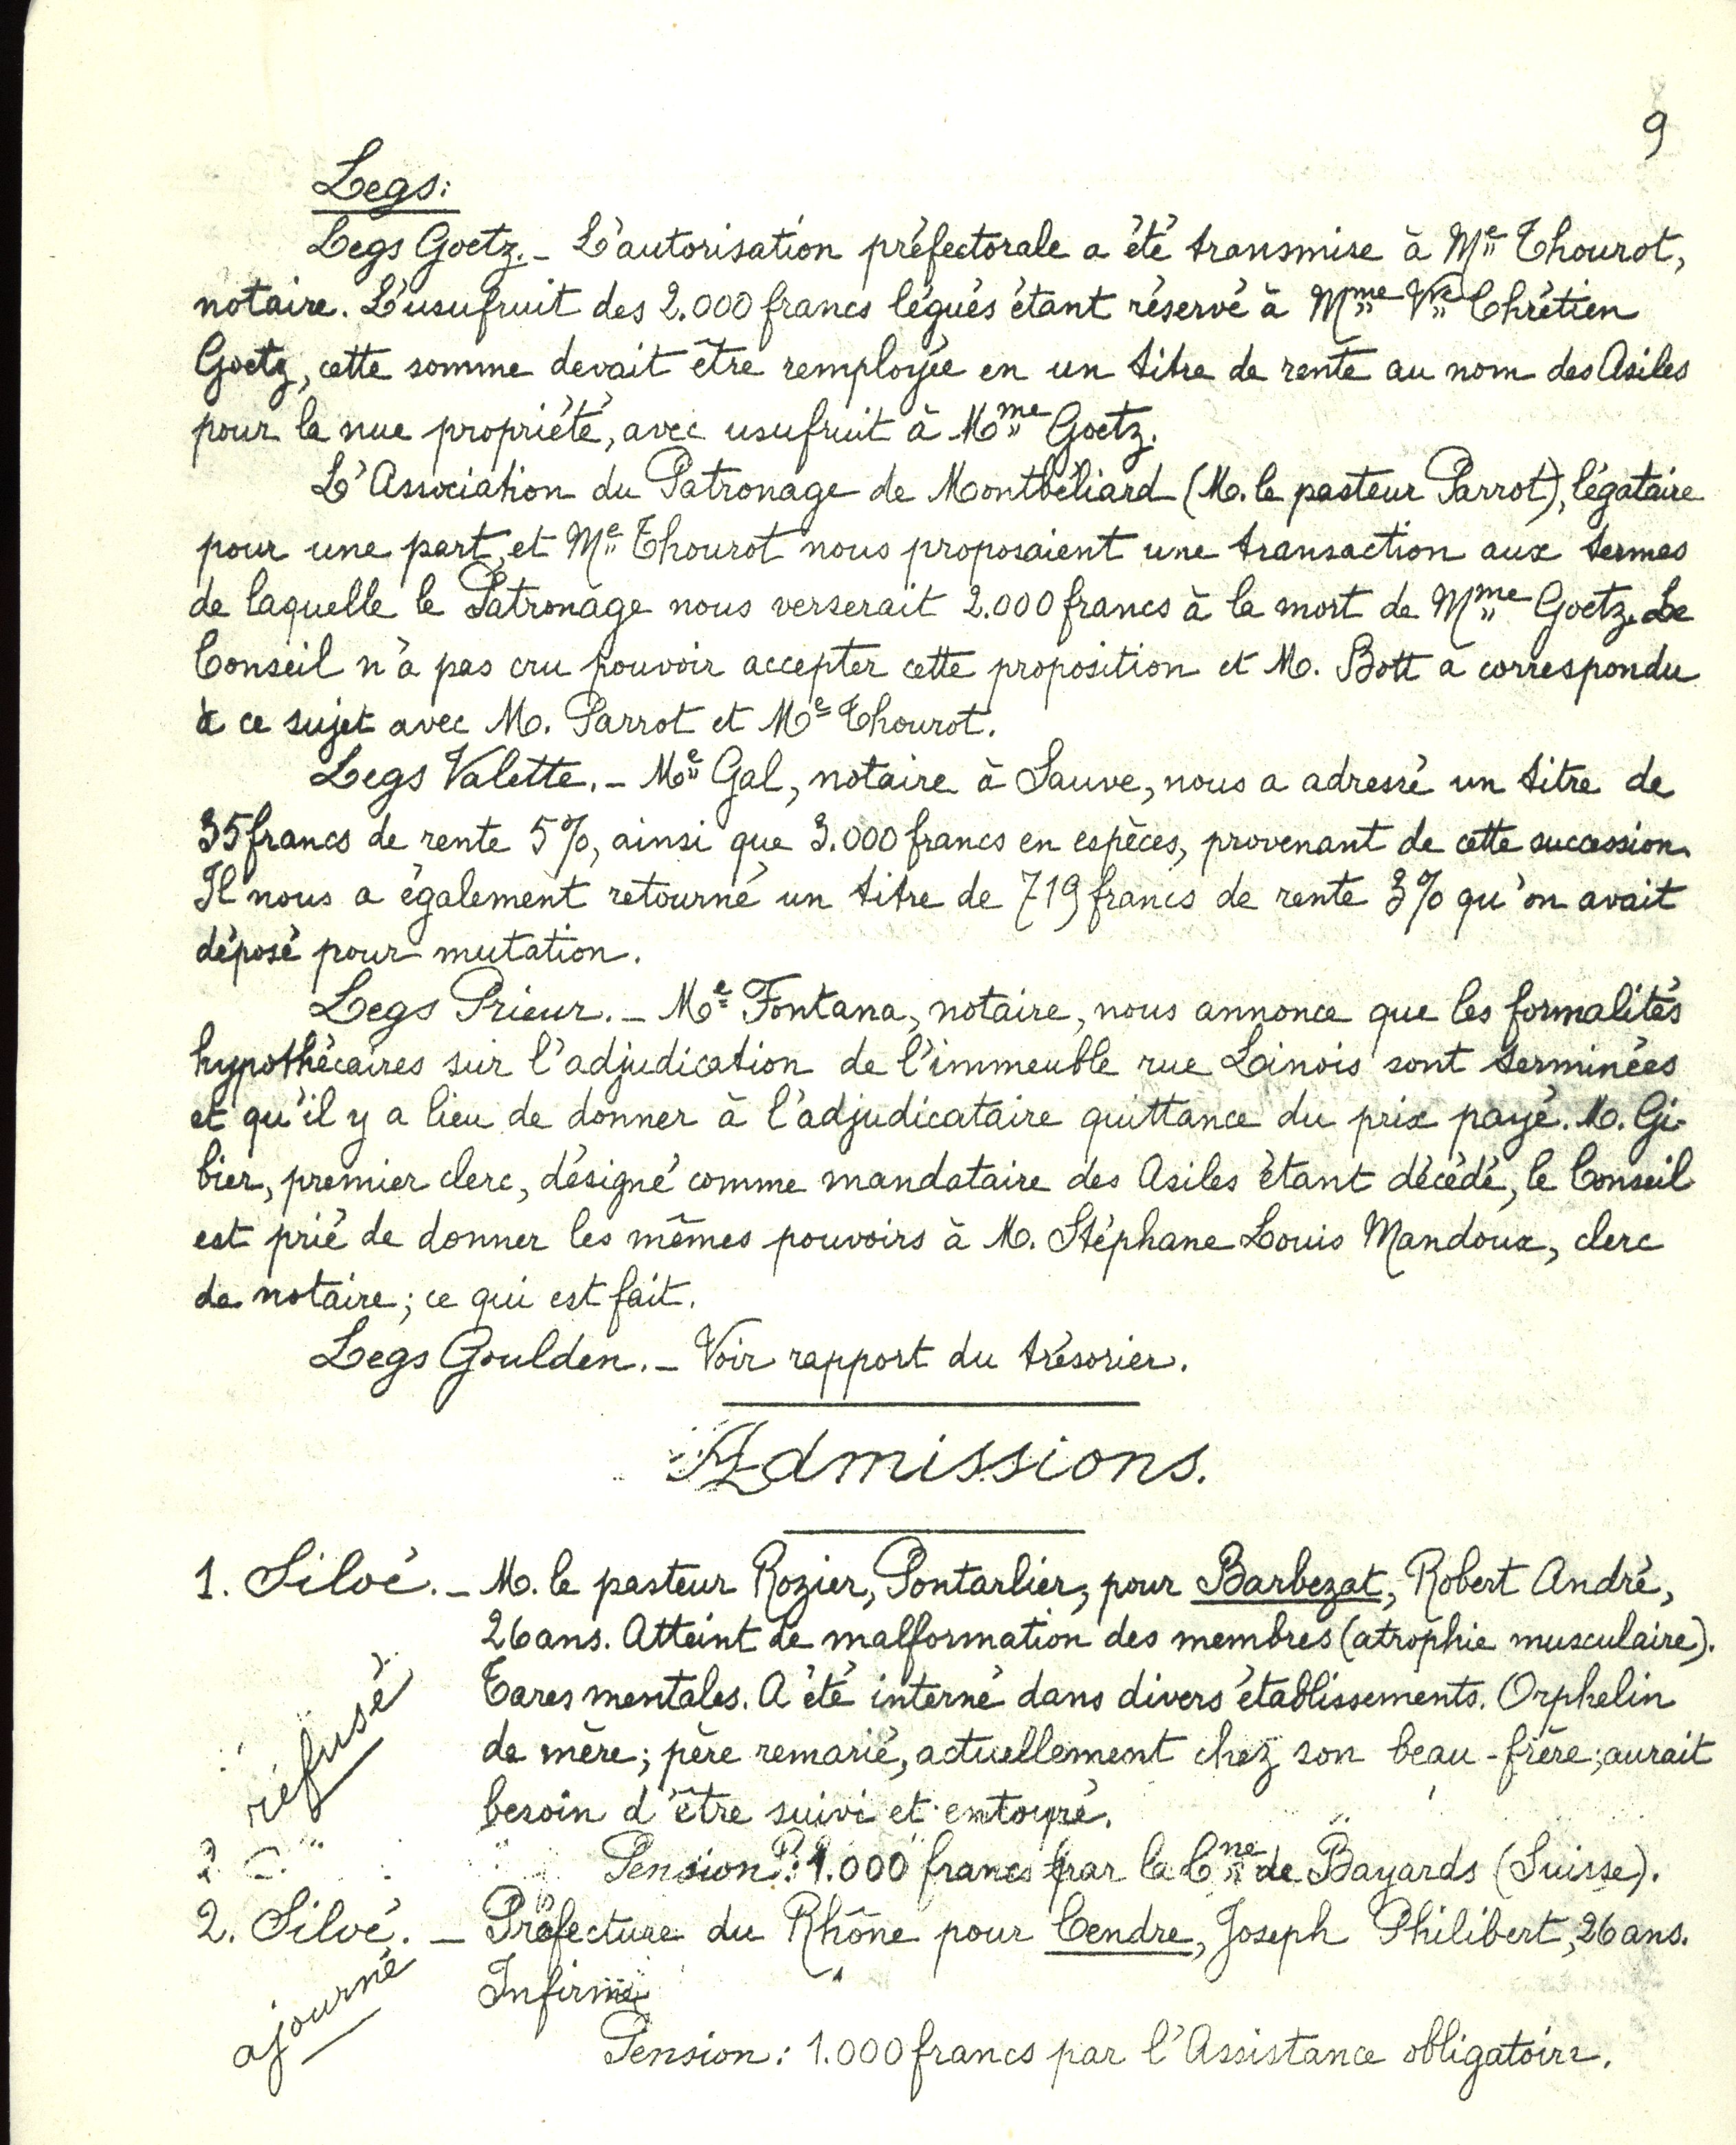 9
Legs:
Legs Goetz. – L'autorisation préfectorale a été transmise à Me Thourot,
notaire. L'usufruit des 2.000 francs légués étant réservé à Mme Vve Chrétien
Goetz, cette somme devait être remployée en un titre de rente au nom des Asiles
pour la nue propriété, avec usufruit à Mme Goetz.
L'Association du Patronage de Montbéliard (M. le pasteur Parrot), légataire
pour une part, et Me Thourot nous proposaient une transaction aux termes
de laquelle le Patronage nous verserait 2.000 francs à la mort de Mme Goetz. Le
Conseil n'a pas cru pouvoir accepter cette proposition et M. Bott a correspondu
à ce sujet avec M. Parrot et Me Thourot.
Legs Valette. – Me Gal, notaire à Sauve, nous a adressé un titre de
35 francs de rente 5%, ainsi que 3.000 francs en espèces, provenant de cette succession.
Il nous a également retourné un titre de 719 francs de rente 3% qu'on avait
déposé pour mutation.
Legs Prieur. – Me Fontana, notaire, nous annonce que les formalités
hypothécaires sur l'adjudication de l'immeuble rue Linois sont terminées
et qu'il y a lieu de donner à l'adjudicataire quittance du prix payé. M. Gi-
bier, premier clerc, désigné comme mandataire des Asiles étant décédé, le Conseil
est prié de donner les mêmes pouvoirs à M. Stéphane Louis Mandoux, clerc
de notaire; ce qui est fait.
Legs Goulden. – Voir rapport du trésorier.
Admissions.
1. Siloé. – M. le pasteur Rozier, Pontarlier, pour Barbezat, Robert André,
26 ans. Atteint de malformation des membres (atrophie musculaire).
Tares mentales. A été interné dans divers établissements. Orphelin
de mère; père remarié, actuellement chez son beau-frère; aurait
besoin d'être suivi et entouré.
refusé
Pension: 1.000 francs par la Cne de Bayards (Suisse).
2. Siloé. – Préfecture du Rhône pour Cendre, Joseph Philibert, 26 ans.
Infirme
ajourné
Pension: 1.000 francs par l'Assistance obligatoire.